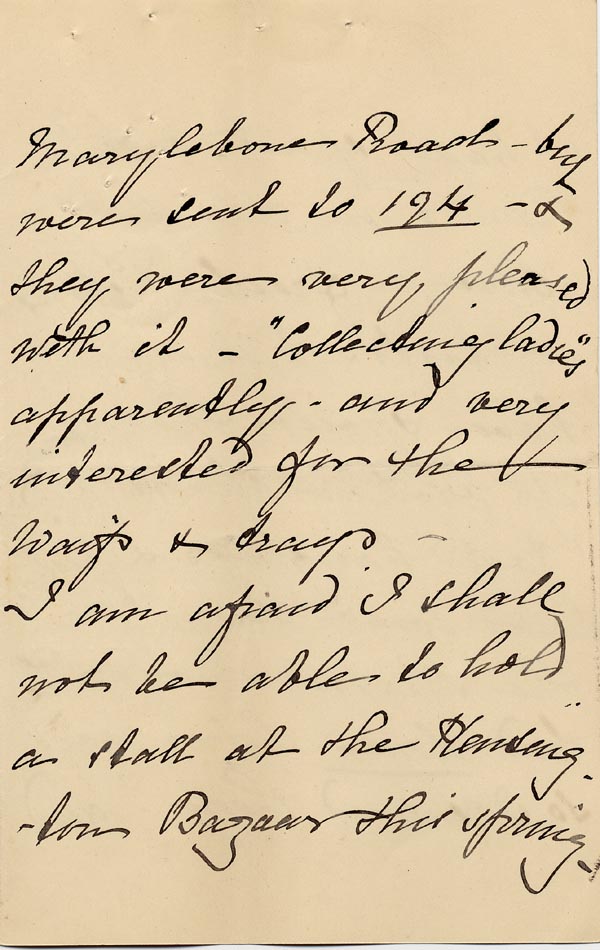 Marylebone Road - but
were sent to 194 - &
they were very pleased
with it - "Collecting ladies"
apparently - and very
interested for the
Waifs & Strays -
I am afraid I shall
not be able to hold
a stall at the Kensing-
-ton Bazaar this spring -